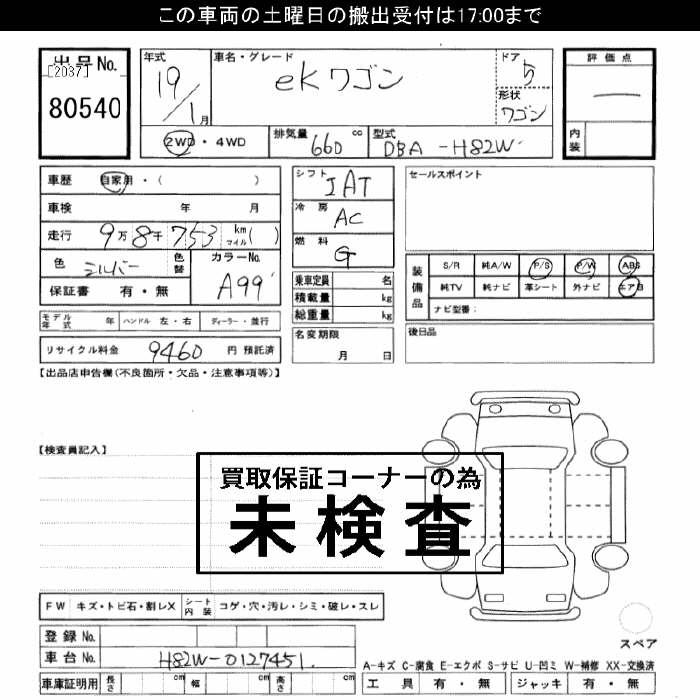 この車両の土曜日の搬出受付は17:00まで
出品No.
[2037]
80540
年式
19/1月
車名・グレード
ekワゴン
ドア
5
形状
ワゴン
評価点
内装
2WD・4WD
排気量 660 cc
型式 DBA-H82W
車歴 自家用・( )
車検 年 月
走行 9万8千753 km マイル( )
色 シルバー 色替
カラーNo. A99
保証書 有・無
シフト IAT
冷房 AC
燃料 G
乗車定員 名
積載量 kg
総重量 kg
セールスポイント
装備品
S/R 純A/W P/S P/W ABS
純TV 純ナビ 革シート 外ナビ エアB
ナビ型番:
モデル年式 年 ハンドル 左・右 ディーラー・並行
リサイクル料金 9460 円 預託済
名変期限
月 日
後日品
【出品店申告欄(不良箇所・欠品・注意事項等)】
【検査員記入】
買取保証コーナーの為
未検査
FW キズ・トビ石・割レX シート内装 コゲ・穴・汚レ・シミ・破レ・スレ
登録No.
車台No. H82W-0127451
車庫証明用 長さ cm 幅 cm 高さ cm
スペア
A-キズ C-腐食 E-エクボ S-サビ U-凹ミ W-補修 XX-交換済
工具 有・無 ジャッキ 有・無